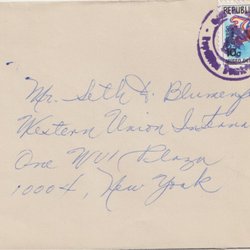 REPUBL
10¢
Mr. Seth & Blumenf
Western Union Interna
One WUI Plaza
10004, New York